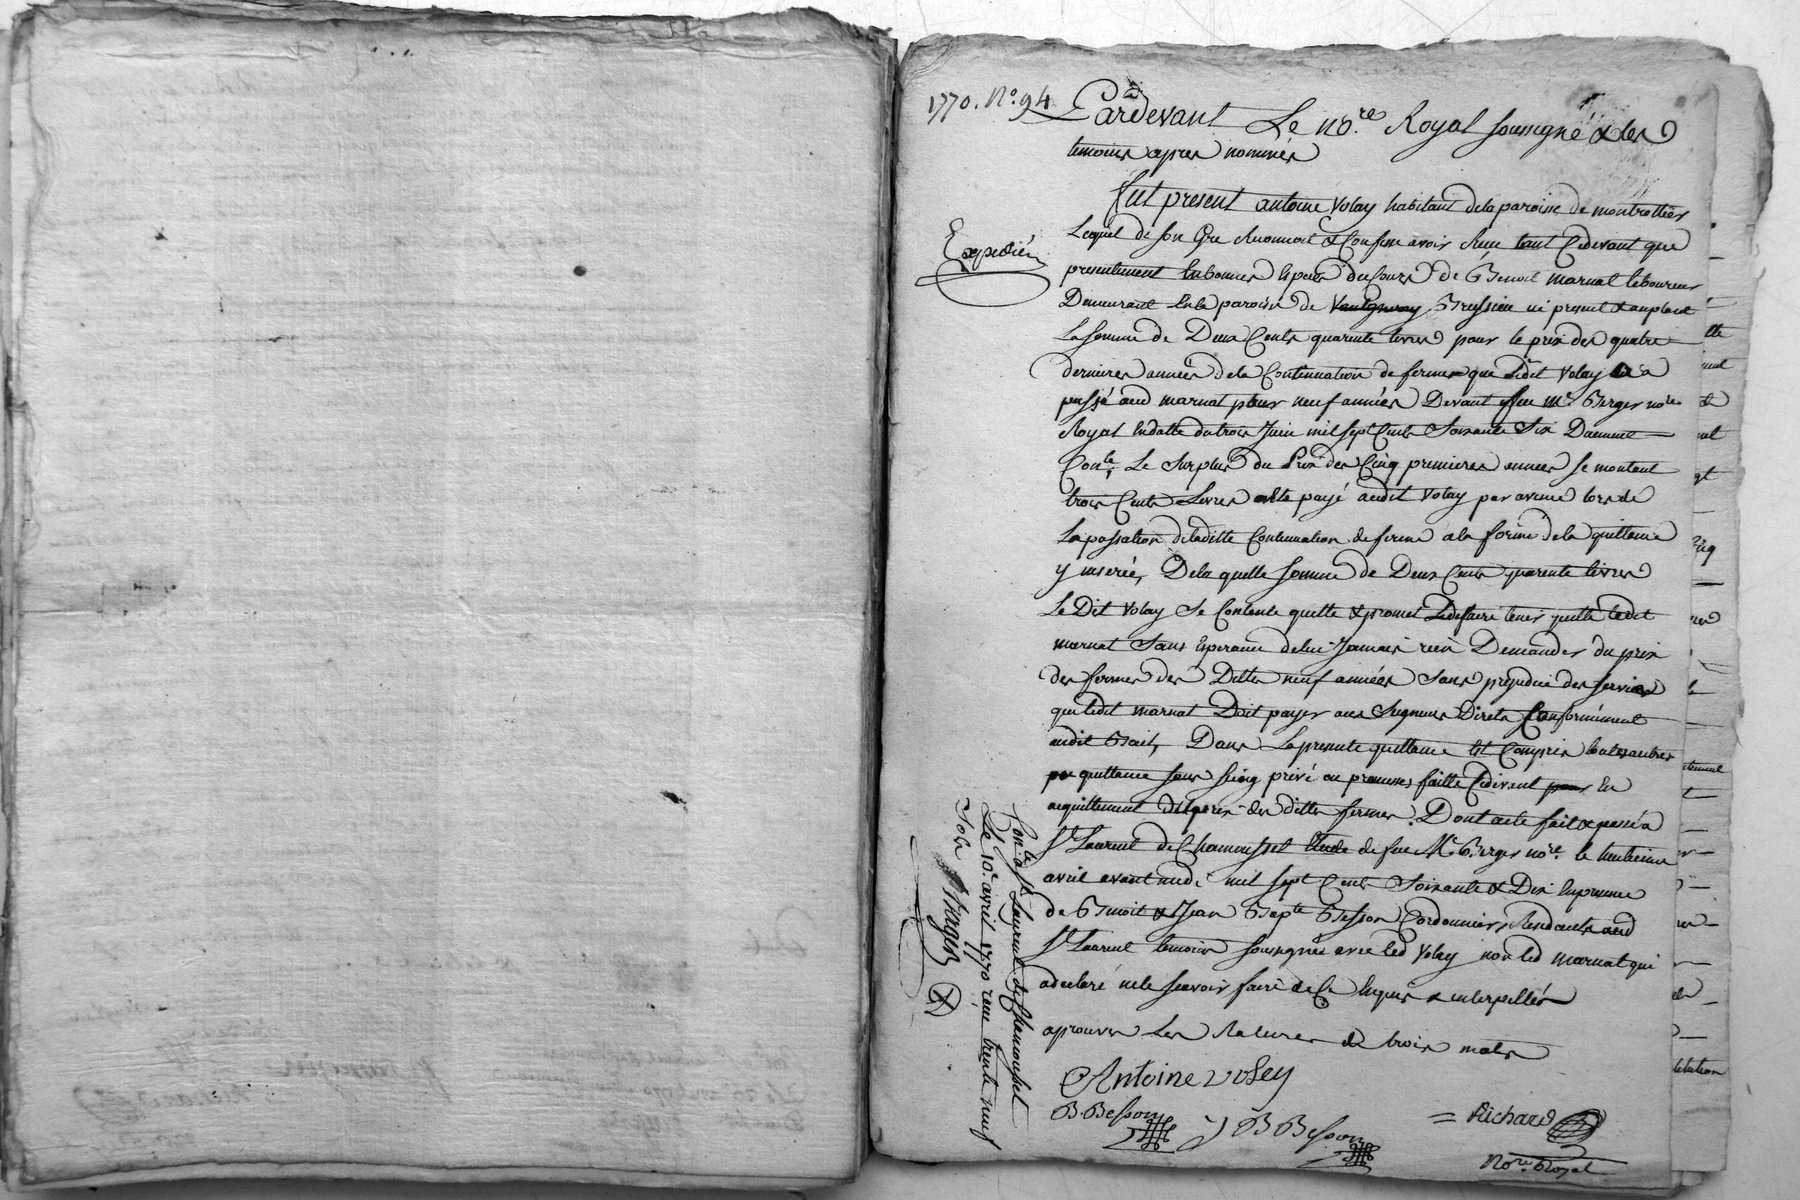 1770. No. 94
Pardevant Le no.re Royal soussigné & les
temoins apres nommés
fut present antoine Volay habitant dela paroisse de montrottier
Lequel de son gré reconnoit & Confesse avoir Reçu tant Cidevant que
presentement En bonnes Especes du Cours de Benoit marnat laboureur
Demeurant En la paroisse de Bressieu ici present & acceptant
La somme de Deux Cents quarente livres pour le prix des quatre
dernieres années dela Continuation de ferme que Ledit Volay a
passé aud marnat pour neuf années Devant feu Me. Berger nore
Royal En datte du trois Juin mil sept Cents Soixante Six Duement
Conlé. Le Surplus du Prix des Cinq premieres années se montant
trois Cents Livres ayant été payé audit Volay par avance lors de
La passation de laditte Continuation de ferme a la forme de la quittance
y inserée, De la quelle somme de Deux Cents quarente livres
Le Dit Volay Se Contente quitte & promet Le faire tenir quitte ledit
marnat Sans Esperance de lui Jamais rien Demander du prix
des fermes des Dittes neuf années Sans prejudice des servis
que ledit marnat Doit payer aux Seigneurs Directs Conformément
audit Bail, Dans La presente quittance Est Compris toutes autres
quittance sous seing privé ou promesses faitte Cidevant En
acquittement des prix des dittes fermes. Dont acte fait & passé a
St Laurent de Chamousset Etude de feu Me Berger nore. le huitieme
avril avant midi mil sept Cents Soixante & Dix En presence
de Benoit & Jean Bapte Besson Cordonniers Residants aud
St Laurent temoins soussignés avec led Volay non led marnat qui
a declaré ne le sçavoir faire de Ce Enquis & interpellés
aprouvés Les Ratures de trois mots
Antoine voley
B. Besson
J B Besson
= Richard
Nore Royal
Expedié
Conlé. a St Laurent de Chamousset
Le 10e. avril 1770 reçu trente neuf
Sols